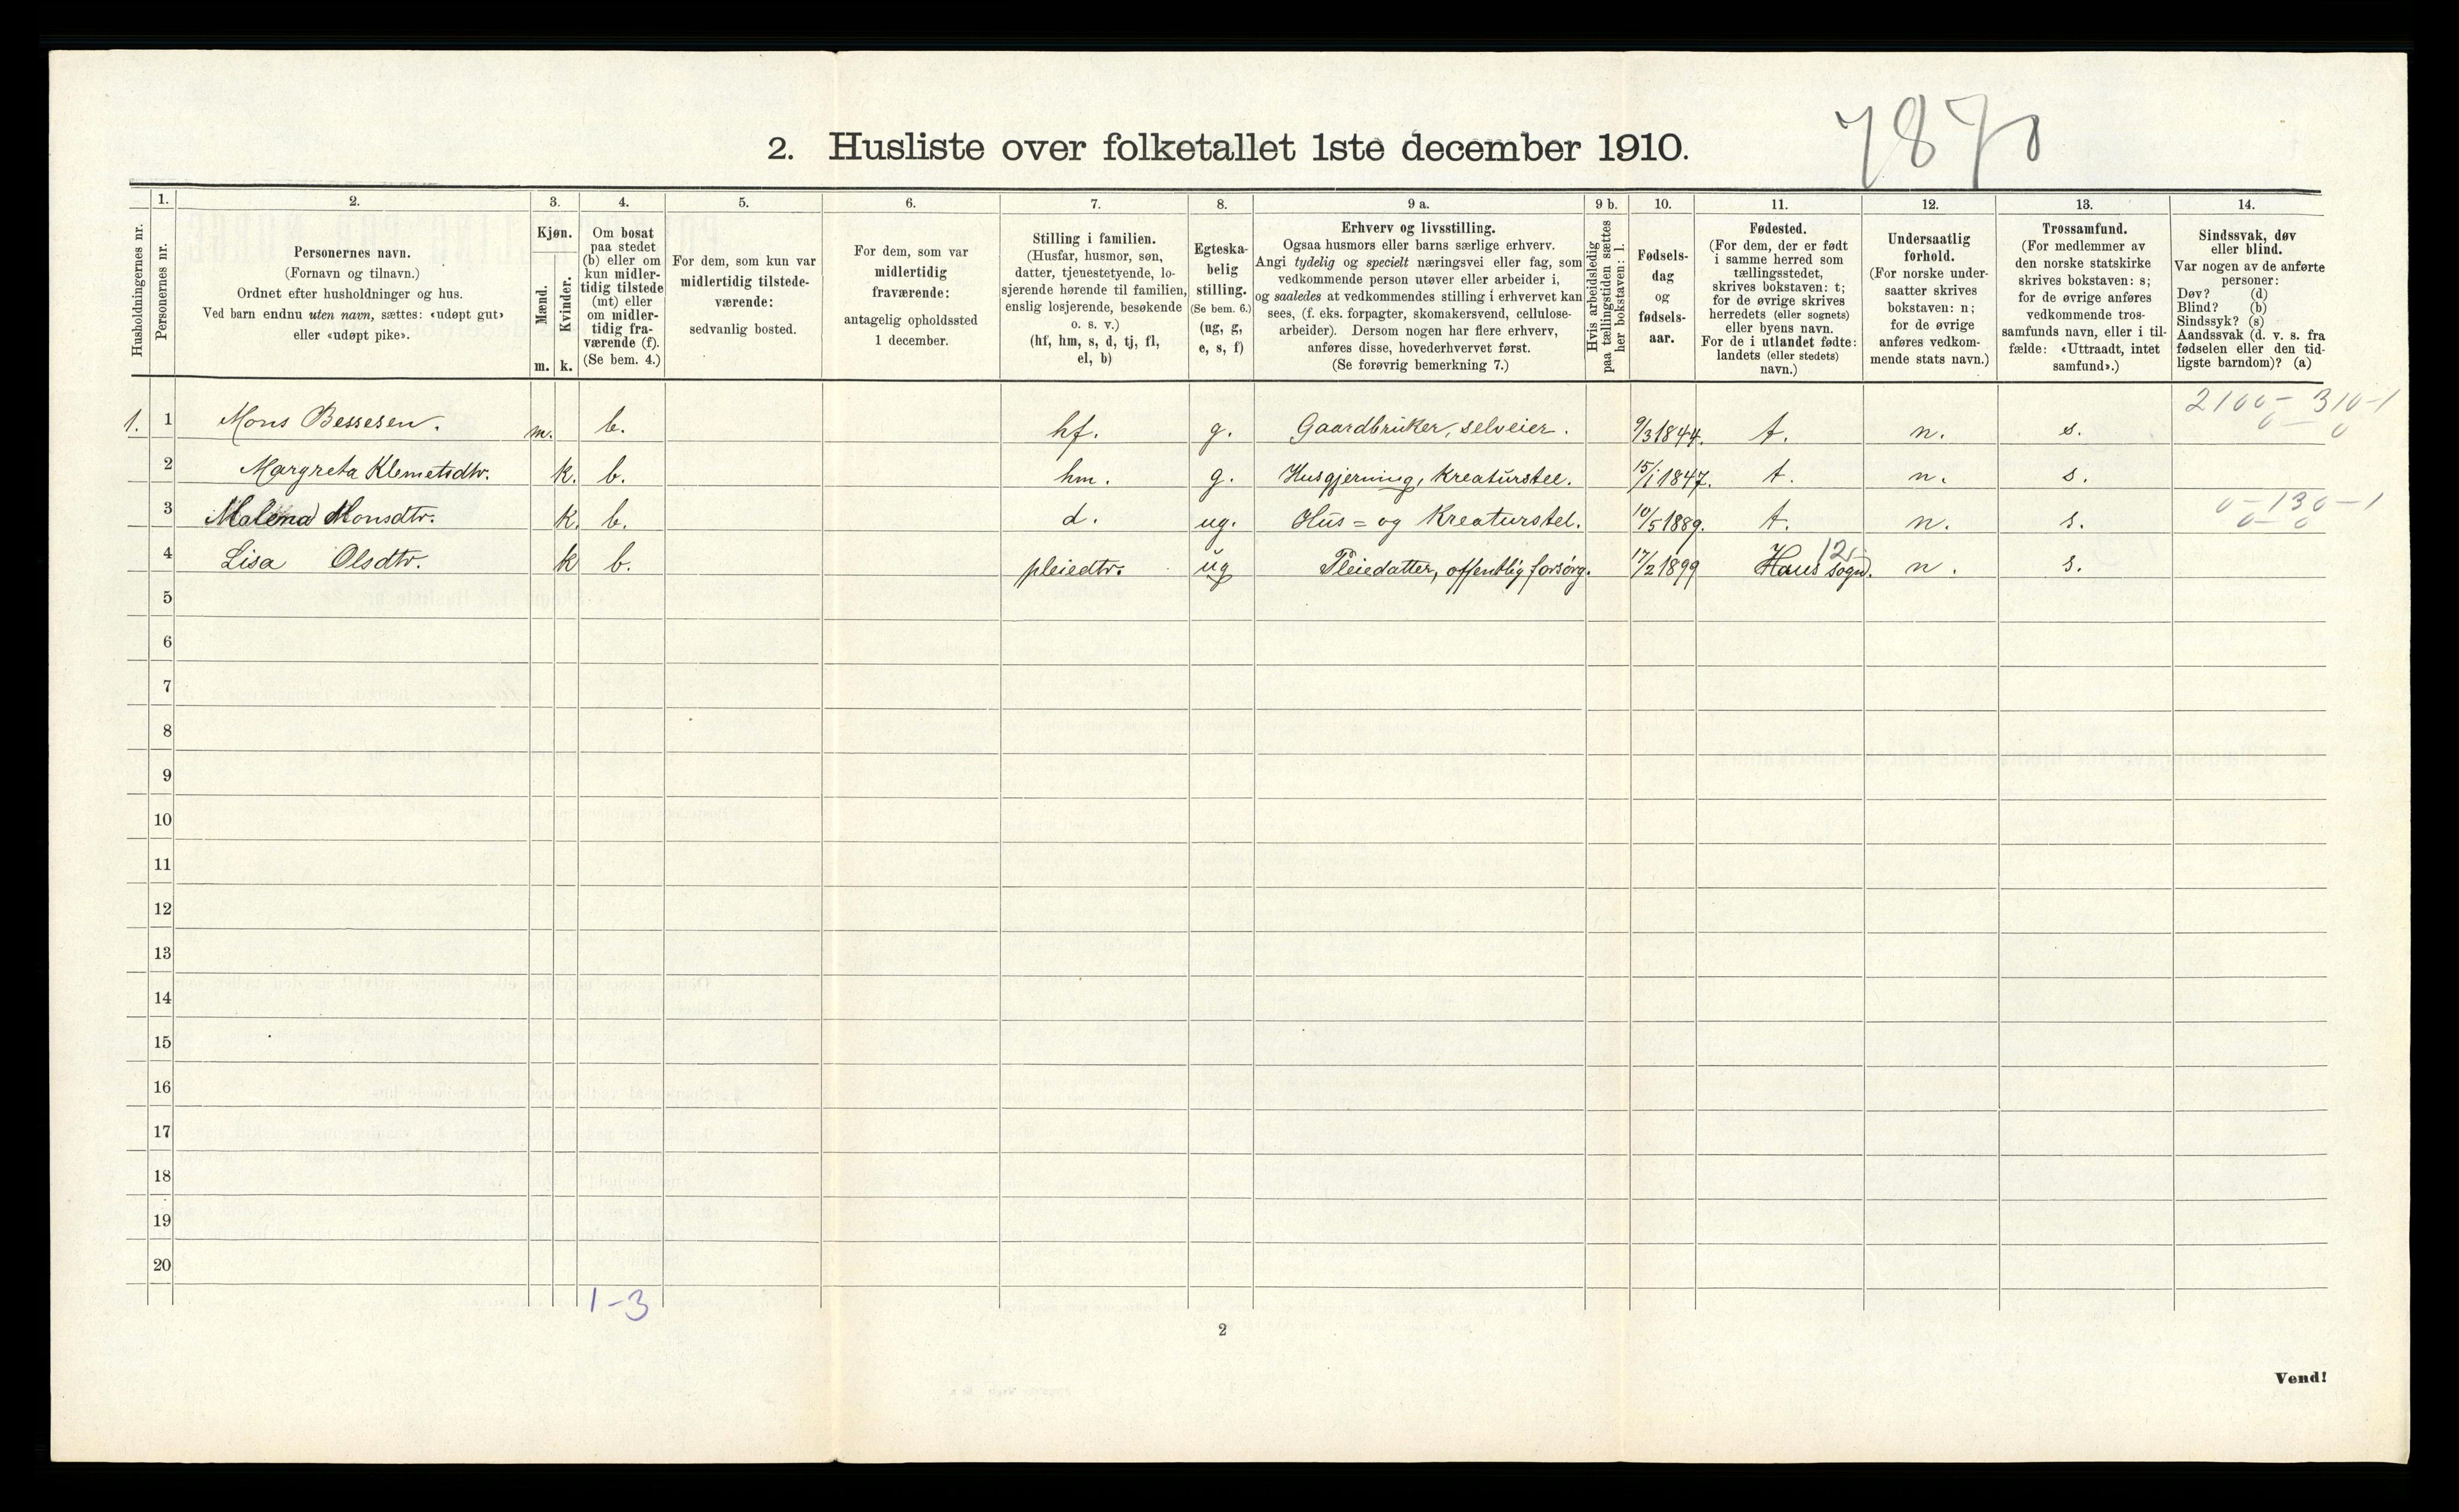 7870
2. Husliste over folketallet 1ste december 1910.
Husholdningernes nr.
1.
Personernes nr.
2.
Personernes navn.
(Fornavn og tilnavn.)
Ordnet efter husholdninger og hus.
Ved barn endnu uten navn, sættes: «udøpt gut»
eller «udøpt pike».
3.
Kjøn.
Mænd.
Kvinder.
m. k.
4.
Om bosat
paa stedet
(b) eller om
kun midler-
tidig tilstede
(mt) eller
om midler-
tidig fra-
værende (f).
(Se bem. 4.)
5.
For dem, som kun var
midlertidig tilstede-
værende:
sedvanlig bosted.
6.
For dem, som var
midlertidig
fraværende:
antagelig opholdssted
1 december.
7.
Stilling i familien.
(Husfar, husmor, søn,
datter, tjenestetyende, lo-
sjerende hørende til familien,
enslig losjerende, besøkende
o. s. v.)
(hf, hm, s, d, tj, fl,
el, b)
8.
Egteska-
belig
stilling.
(Se bem. 6.)
(ug, g,
e, s, f)
9 a.
Erhverv og livsstilling.
Ogsaa husmors eller barns særlige erhverv.
Angi tydelig og specielt næringsvei eller fag, som
vedkommende person utøver eller arbeider i,
og saaledes at vedkommendes stilling i erhvervet kan
sees, (f. eks. forpagter, skomakersvend, cellulose-
arbeider). Dersom nogen har flere erhverv,
anføres disse, hovederhvervet først.
(Se forøvrig bemerkning 7.)
9 b.
Hvis arbeidsledig
paa tællingstiden sættes
her bokstaven: l.
10.
Fødsels-
dag
og
fødsels-
aar.
11.
Fødested.
(For dem, der er født
i samme herred som
tællingsstedet,
skrives bokstaven: t;
for de øvrige skrives
herredets (eller sognets)
eller byens navn.
For de i utlandet fødte:
landets (eller stedets)
navn.)
12.
Undersaatlig
forhold.
(For norske under-
saatter skrives
bokstaven: n;
for de øvrige
anføres vedkom-
mende stats navn.)
13.
Trossamfund.
(For medlemmer av
den norske statskirke
skrives bokstaven: s;
for de øvrige anføres
vedkommende tros-
samfunds navn, eller i til-
fælde: «Uttraadt, intet
samfund».)
14.
Sindssvak, døv
eller blind.
Var nogen av de anførte
personer:
Døv? (d)
Blind? (b)
Sindssyk? (s)
Aandssvak (d. v. s. fra
fødselen eller den tid-
ligste barndom)? (a)
2100 - 310-1
0 - 0
1. 1 Mons Bessesen. m. b. hf. g. Gaardbruker, selveier. 9/3 1844. t. n. s.
2 Margreta Klemetsdtr. k. b. hm. g. Husgjerning, Kreaturstel. 15/1 1847. t. n. s.
0 - 130 - 1
0 - 0
3 Malena Monsdtr. k. b. d. ug. Hus= og Kreaturstel. 10/5 1889. t. n. s.
12
4 Lisa Olsdtr. k b. pleiedtr. ug Pleiedatter, offentlig forsørg. 17/2 1899 Haus sogn. n. s.
5
6
7
8
9
10
11
12
13
14
15
16
17
18
19
20
1-3
2
Vend!